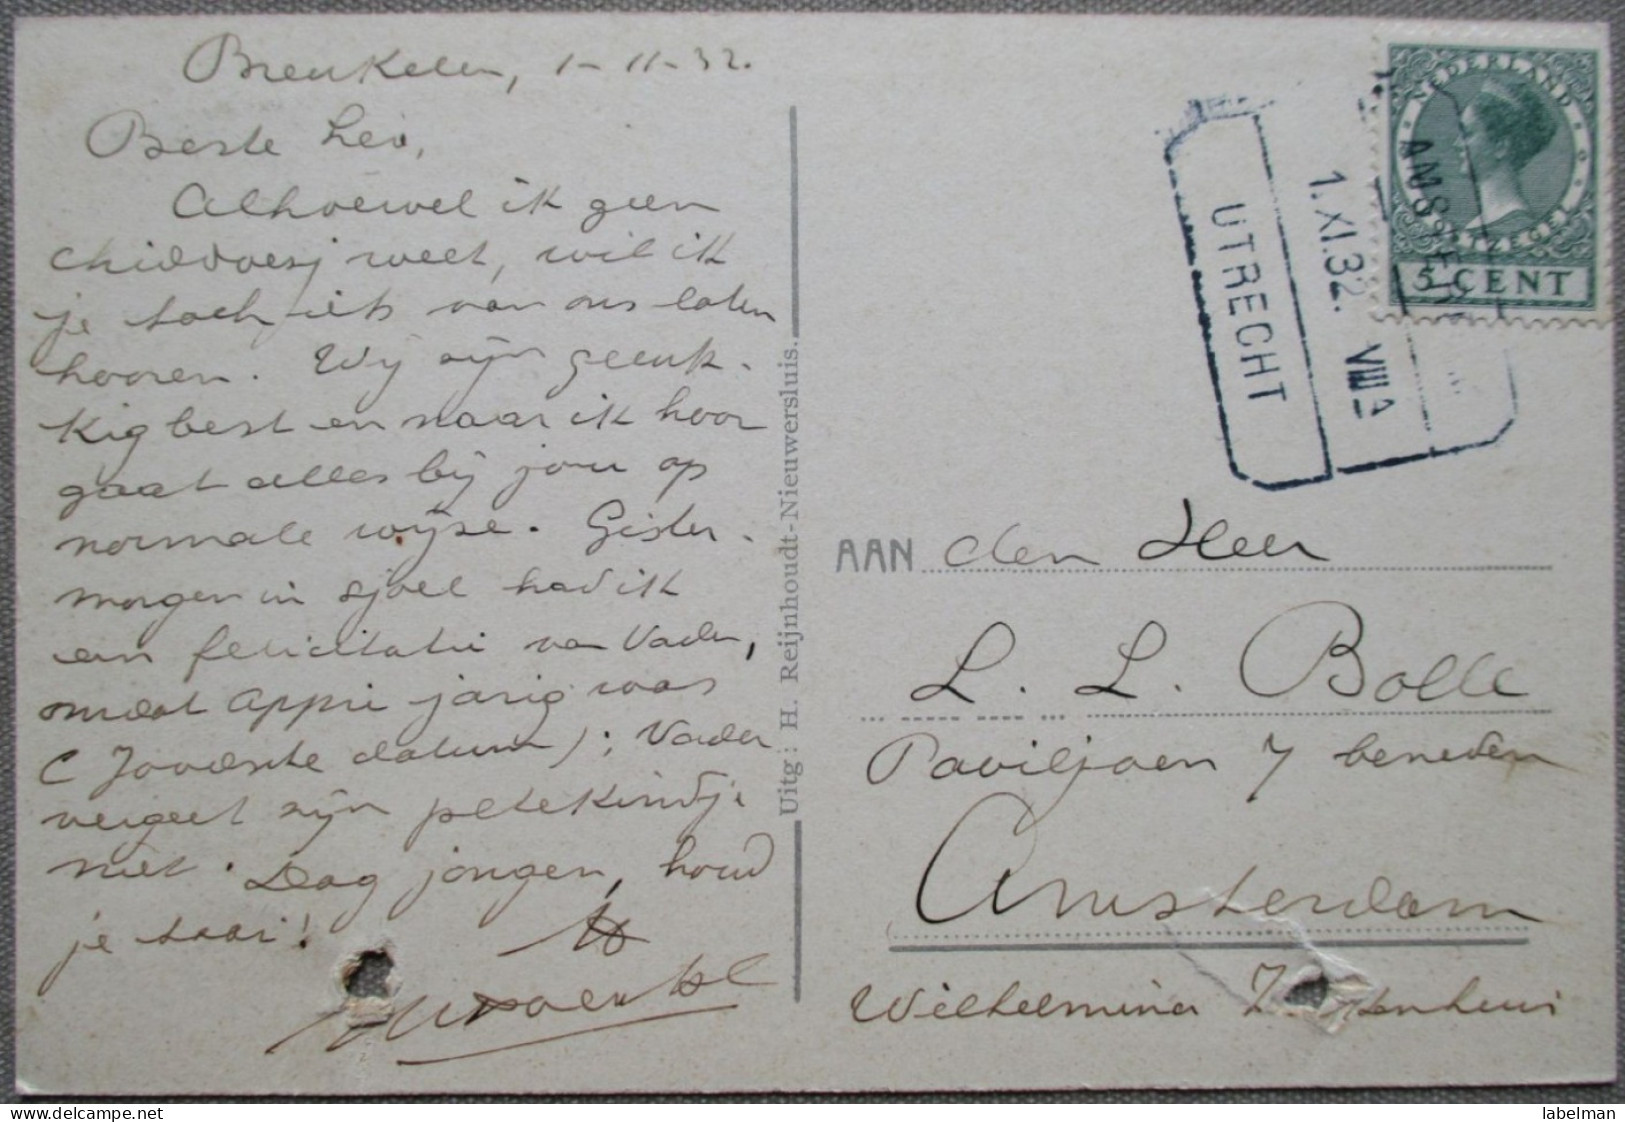 Breukelen, 1-11-32.
Beste Leo,
Alhoewel ik geen
weet, wil ik
je toch iets van ons laten
hooren. Wij zijn geluk-
kig best en naar ik hoor
gaat alles bij jou op
normale wijze. Gister-
morgen in sjoel had ik
een felicitatie van Vader,
omdat Appie jarig was
(Joodsche datum); Vader
vergeet zijn petekindje
niet. Dag jongen, houd
je taai!
Uitg: H. Reijnhoudt-Nieuwersluis.
NEDERLAND
POSTZEGEL
5 CENT
AMSTE
UTRECHT
1.XI.32. VIII A
AAN den Heer
L. L. Bolle
Paviljoen 7 beneden
Amsterdam
Wilhelmina
labelman
delcampe.net